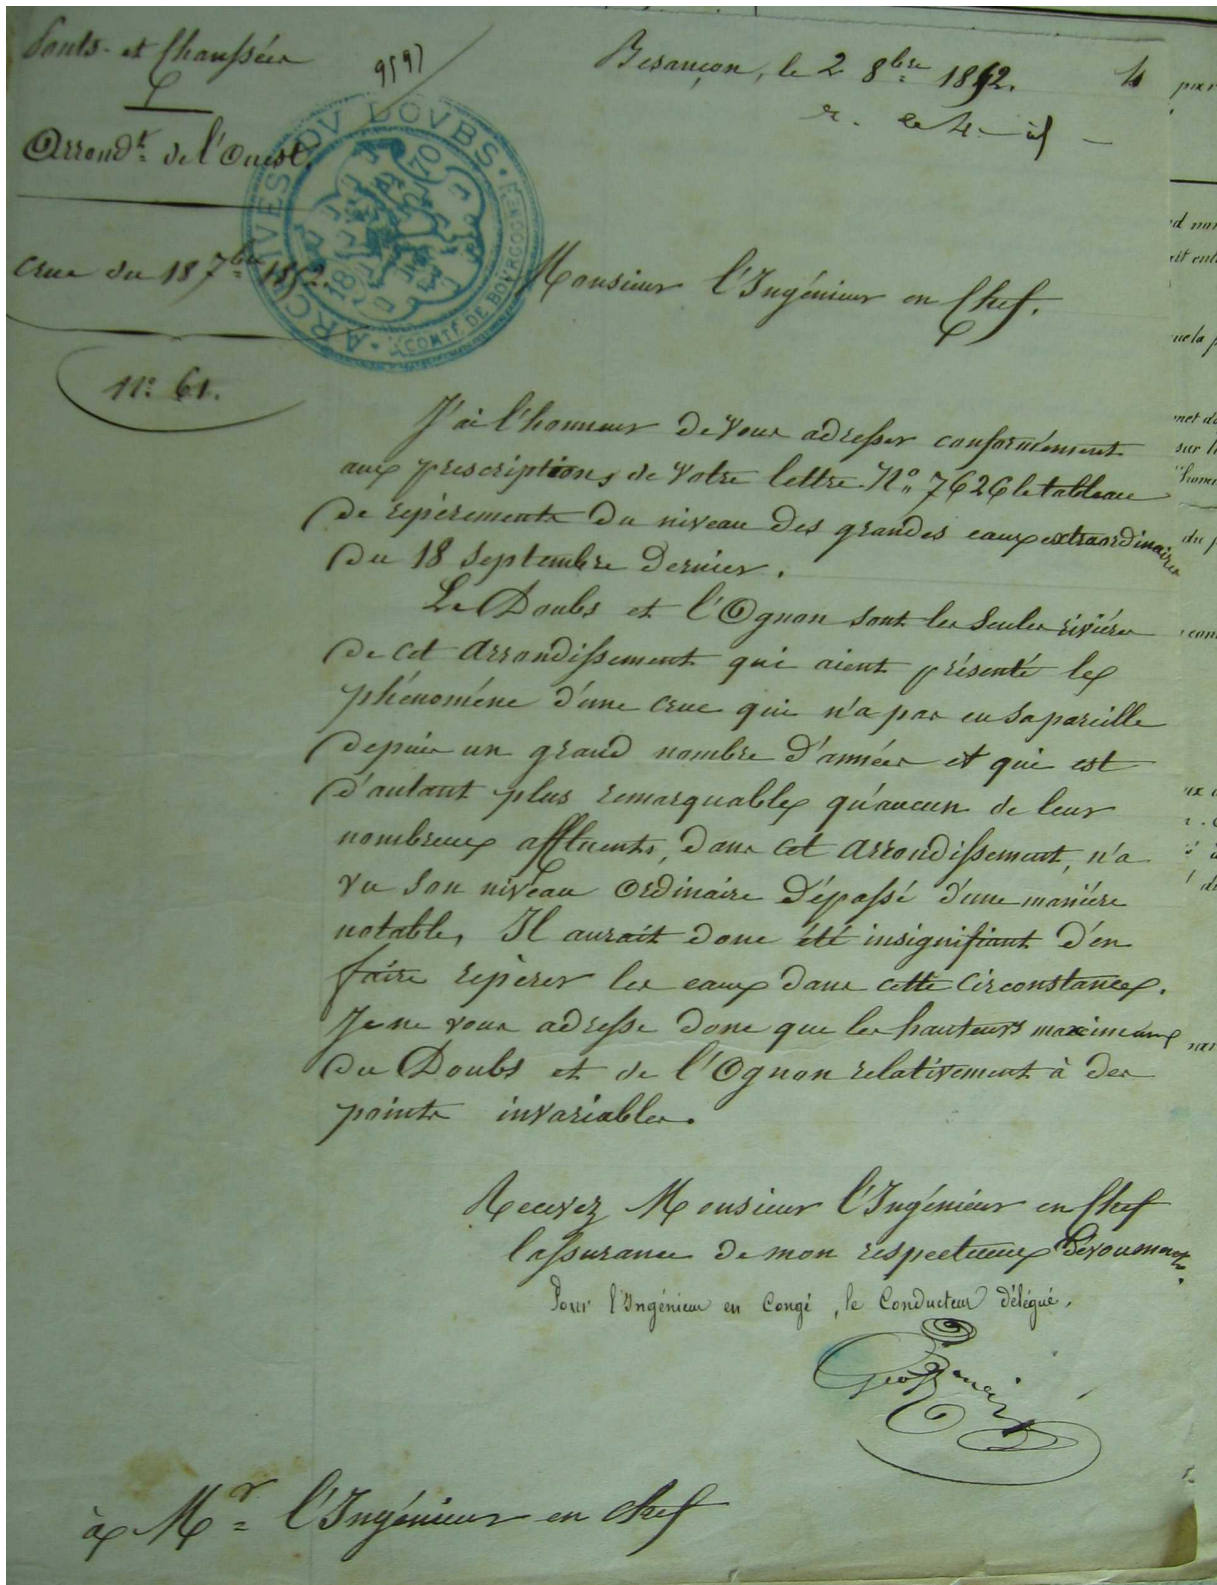 Ponts et Chaussées
Arrond.t de l'Ouest.
crue du 18 7bre 1852.
n.o 61.
9597
Besançon, le 2 8bre 1852.
ARCHIVES DU DOUBS
COMTÉ DE BOURGOGNE
1870
Monsieur l'Ingénieur en Chef.
J'ai l'honneur de vous adresser conformément
aux prescriptions de votre lettre N.o 7626 le tableau
de repèrements du niveau des grandes eaux extraordinaires
du 18 Septembre dernier.
Le Doubs et l'Ognon sont les seules rivières
de cet arrondissement qui aient présenté le
phénomène d'une crue qui n'a pas eu sa pareille
depuis un grand nombre d'années et qui est
d'autant plus remarquable qu'aucun de leur
nombreux affluents, dans cet arrondissement, n'a
vu son niveau ordinaire dépassé d'une manière
notable, Il aurait donc été insignifiant d'en
faire repèrer les eaux dans cette circonstance.
Je ne vous adresse donc que les hauteurs maximum
du Doubs et de l'Ognon relativement à des
points invariables.
Recevez Monsieur l'Ingénieur en Chef
l'assurance de mon respectueux dévoument.
Pour l'Ingénieur en congé, le Conducteur délégué,
à M.r l'Ingénieur en chef